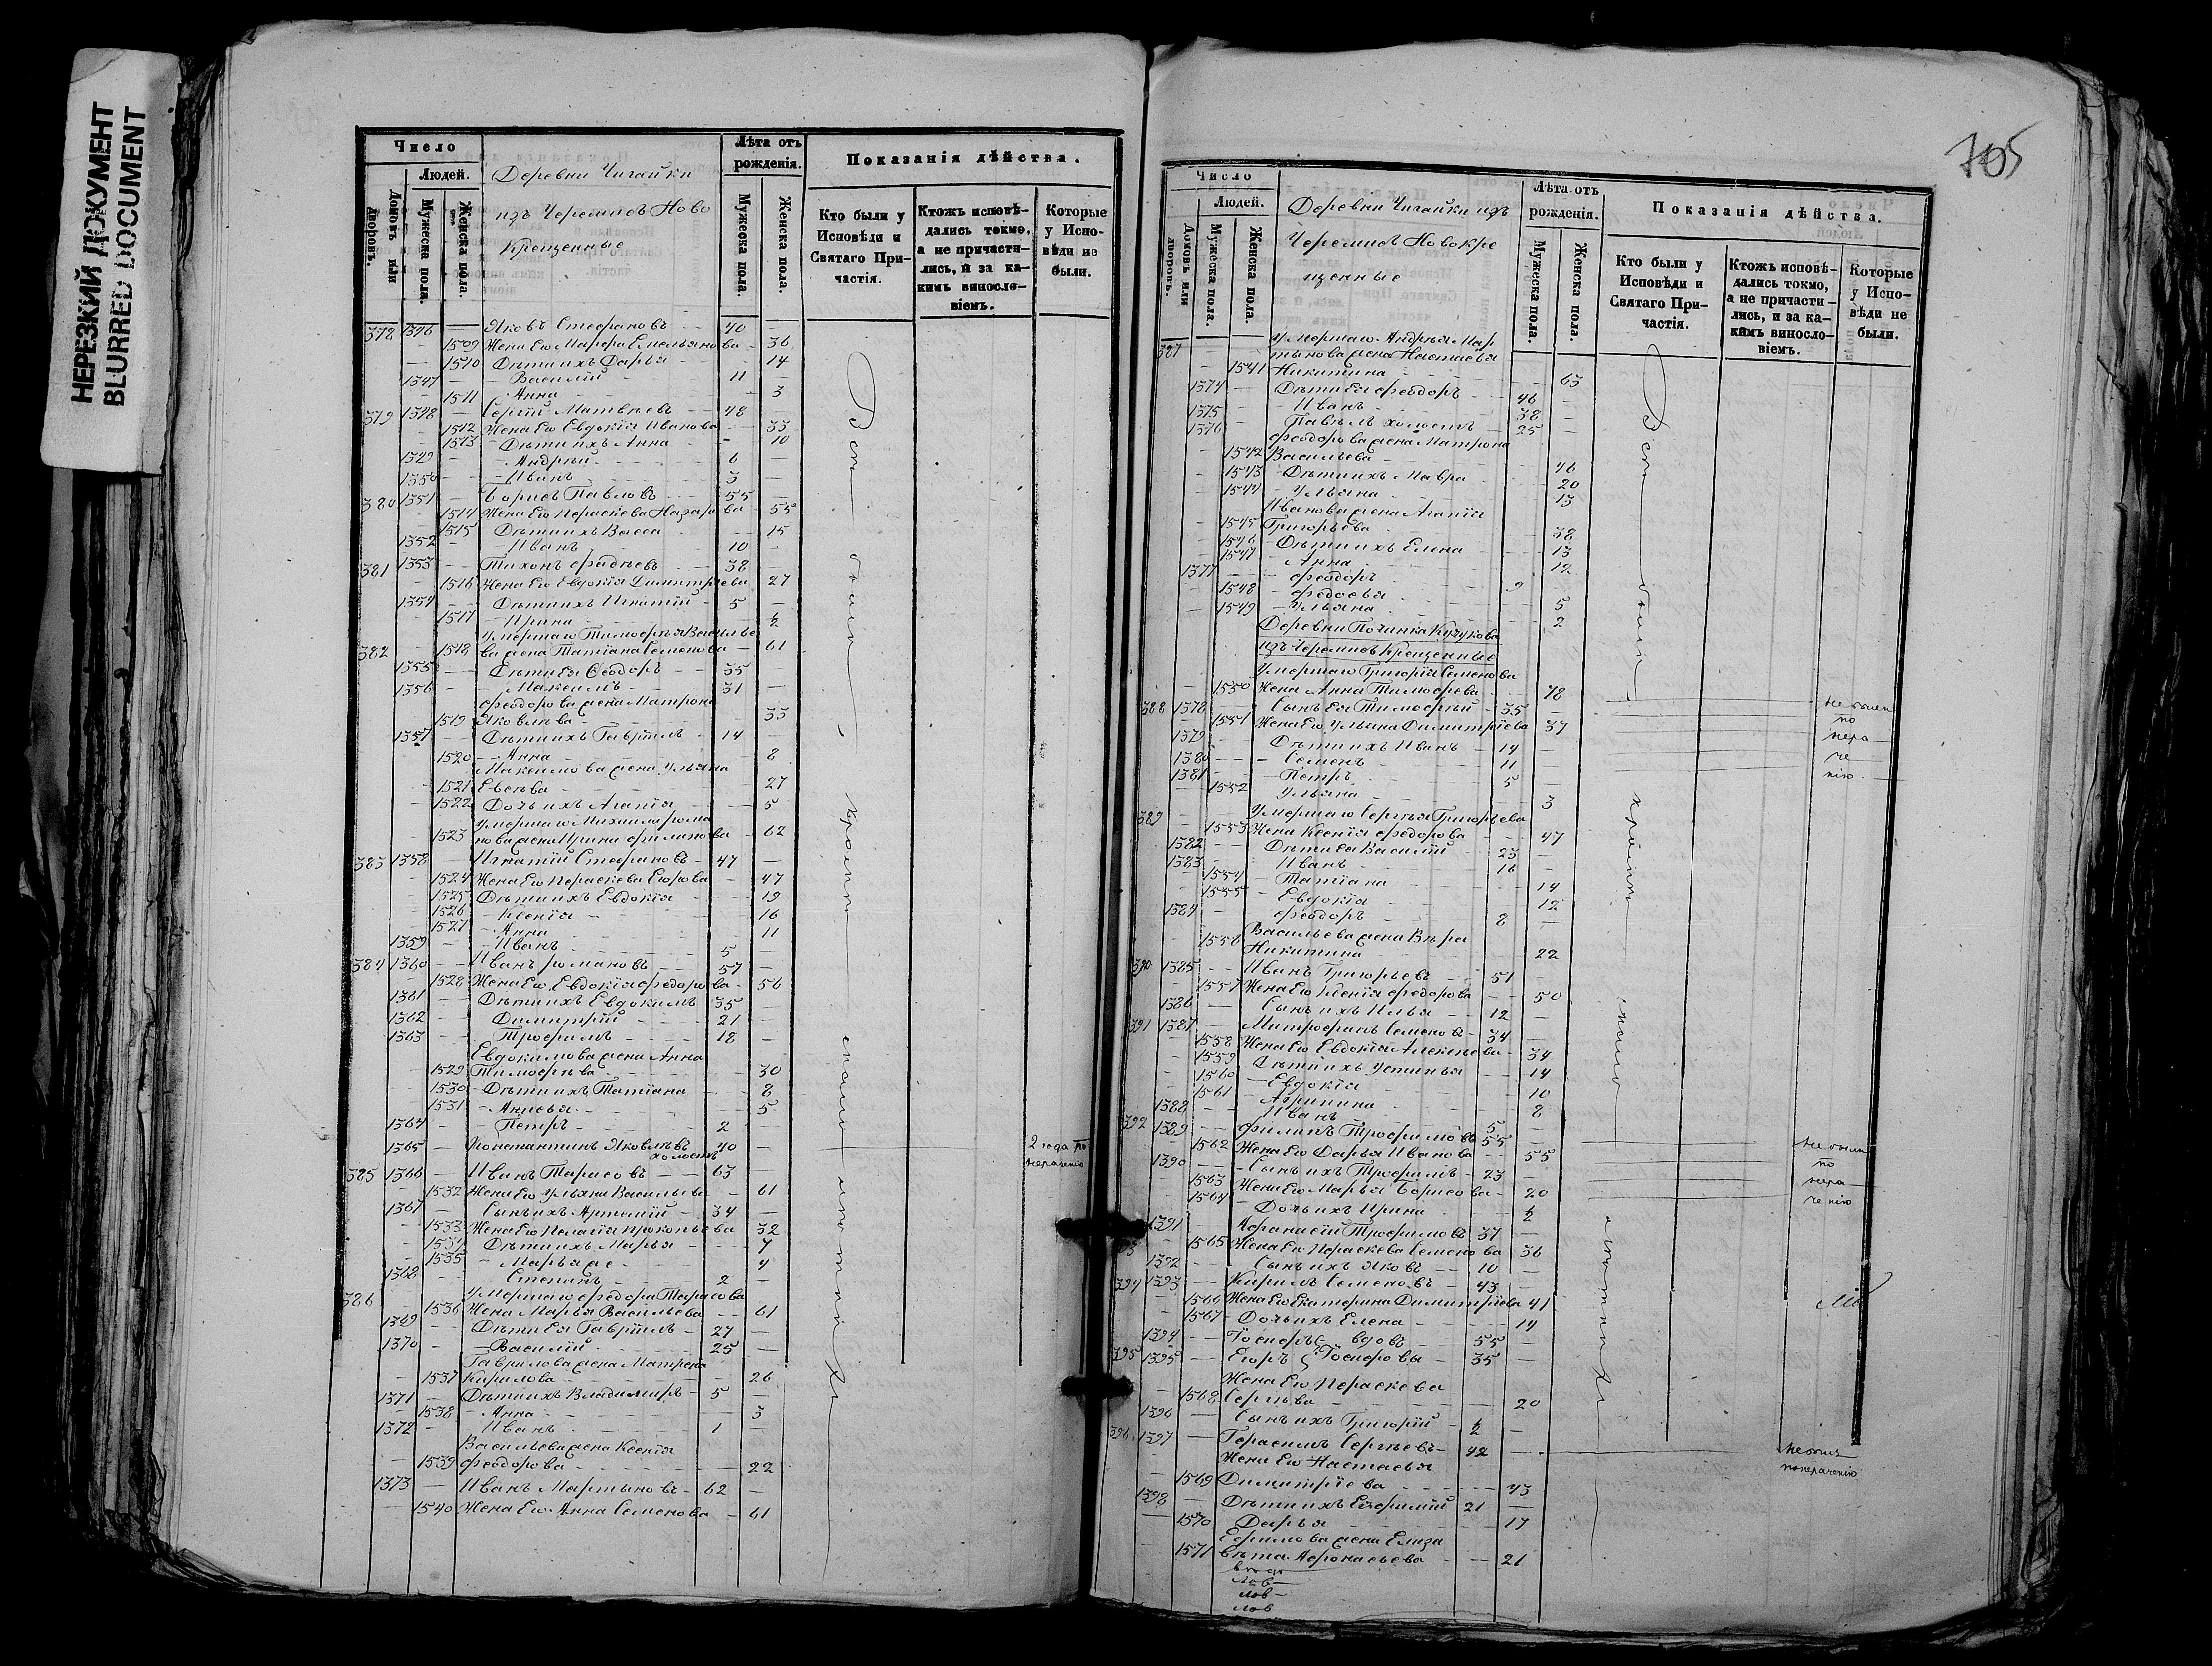 НЕРЕЗКИЙ ДОКУМЕНТ
BLURRED DOCUMENT
Число
Людей.
Домовъ или дворовъ.
Мужеска пола.
Женска пола.
Деревни Чигайки
изъ Черемисъ Ново
крещенные
Лѣта отъ рожденія.
Мужеска пола.
Женска пола.
Показанія дѣйства.
Кто были у Исповѣди и Святаго Причастія.
Ктожъ исповѣдались токмо, а не причастились, и за какимъ винословіемъ.
Которые у Исповѣди не были.
378 1346 — Яковъ Стефановъ 40 —
1509 Жена Его Марфа Емельянова 36
1510 Дѣти ихъ Дарья 14
1347 — Василій 11 —
1511 Анна 3
379 1348 — Сергій Матвѣевъ 48 —
1512 Жена Его Евдокія Иванова 33
1513 Дѣти ихъ Анна 10
1349 — Андрей 6 —
1350 — Иванъ 3 —
380 1351 — Борисъ Павловъ 55 —
1514 Жена Его Параскева Назарова 55
1515 Дѣти ихъ Васса 15
1352 — Иванъ 10 —
381 1353 — Тихонъ Фадѣевъ 38 —
1516 Жена Его Евдокія Димитріева 27
1354 — Дѣти ихъ Игнатій 5 —
1517 Ирина ½
Умершаго Тимофея Василье
382 1518 ва жена Татіана Семенова 61
1355 — Дѣти Ея Ѳеодоръ 35
1356 — Максимъ 31 —
Феодорова жена Матрона
1519 Яковлева 33
1357 — Дѣти ихъ Гавріилъ 14 —
1520 Анна 8
Максимова жена Ульяна
1521 Евсѣева 27
1522 Дочь ихъ Агапія 5
Умершаго Михаила Рома
1523 нова жена Ирина Филипова 62
383 1358 — Игнатій Стефановъ 47 —
1524 Жена Его Параскева Егорова 47
1525 Дѣти ихъ Евдокія 19
1526 Ксенія 16
1527 Анна 11
1359 — Иванъ 5 —
384 1360 — Иванъ Романовъ 57 —
1528 Жена Его Евдокія Федорова 56
1361 — Дѣти ихъ Евдокимъ 35
1362 — Димитрій 21 —
1363 — Трофимъ 18 —
Евдокимова жена Анна
1529 Тимофѣева 30
1530 Дѣти ихъ Татіана 8
1531 Анисья 5
1364 — Петръ 2 —
1365 — Константинъ Яковлевъ 40 —
холостъ
2 года по нераченію
385 1366 — Иванъ Тарасовъ 63
1532 Жена Его Ульяна Васильева 61
1367 — Сынъ ихъ Артемій 34 —
1533 Жена Его Пелагія Прокопьева 32
1534 Дѣти ихъ Марья 7
1535 Марья же 4
1368 — Степанъ 2 —
386 Умершаго Федора Тарасова
1536 Жена Марья Васильева 61
1369 — Дѣти Ея Гавріилъ 27 —
1370 — Василій 25 —
Гаврилова жена Матрена
1537 Кирилова 26
1371 — Дѣти ихъ Владимиръ 5 —
1538 Анна 3
1372 — Иванъ 1 —
Васильева жена Ксенія
1539 Феодорова 22
1373 — Иванъ Мартыновъ 62 —
1540 Жена Его Анна Семенова 61
Всѣ были кромѣ
705
Число
Людей.
Домовъ или дворовъ.
Мужеска пола.
Женска пола.
Деревни Чигайки изъ
Черемисъ Новокре
щенные
Лѣта отъ рожденія.
Мужеска пола
Женска пола.
Показанія дѣйства.
Кто были у Исповѣди и Святаго Причастія.
Ктожъ исповѣдались токмо, а не причастились, и за какимъ винословіемъ.
Которые у Исповѣди не были.
387 Умершаго Андрея Мар
тынова жена Настасья
1541 Никитина 63
1374 — Дѣти Ея Феодоръ 46 —
1375 — Иванъ 38 —
1376 — Павелъ холостъ 25 —
Феодорова жена Матрона
1542 Васильева 46
1543 Дѣти ихъ Мавра 20
1544 Ульяна 13
Иванова жена Агапія
1545 Григорьева 38
1546 Дѣти ихъ Елена 13
1547 Анна 12
1377 — Феодоръ 9
1548 Федосья 5
1549 Ульяна 2
Деревни Починка Кучукова
изъ Черемисъ Крещенные
Умершаго Григорія Семенова
1550 Жена Анна Тимофеева 78
388 1378 — Сынъ Ея Тимофей 35
1551 Жена Его Ульяна Димитріева 37
1379 — Дѣти ихъ Иванъ 14 —
1380 — Семенъ 11 —
1381 — Петръ 5 —
1552 Ульяна 3
не были по нераченію
389 Умершаго Сергѣя Григорьева
1553 Жена Ксенія Федорова 47
1382 — Дѣти Ея Василій 23 —
1383 — Иванъ 16 —
1554 Татіана 14
1555 Евдокія 12
1384 — Феодоръ 8 —
Васильева жена Вѣра
1556 Никитина 22
390 1385 — Иванъ Григорьевъ 51 —
1557 Жена Его Ксенія Федорова 50
1386 — Сынъ ихъ Илья 12 —
391 1387 — Митрофанъ Семеновъ 34 —
1558 Жена Его Евдокія Алексѣева 34
1559 Дѣти ихъ Устинья 14
1560 Евдокія 10
1561 Агрипина 8
1388 — Иванъ 5 —
392 1389 — Филипъ Трофимовъ 55 —
1562 Жена Его Дарья Иванова 55
1390 — Сынъ ихъ Трофимъ 23 —
1563 Жена Его Марья Борисова 20
1564 Дочь ихъ Ирина ½
не были по нераченію
1391 — Афанасій Трофимовъ 37 —
1565 Жена Его Параскева Семенова 36
1392 — Сынъ ихъ Яковъ 10 —
394 1393 — Кирилъ Семеновъ 43 —
1566 Жена Его Екатерина Димитріева 41
1567 Дочь ихъ Елена 14
1394 — Іосифъ вдовъ 55 —
395 1395 — Егоръ Іосифовы 35 —
Жена Его Параскева
1568 Сергѣева 20
1396 — Сынъ ихъ Григорій ½ —
396 1397 — Герасимъ Сергѣевъ 42 —
не былъ по нераченію
Жена Его Настасья
1569 Димитріева 43
1398 — Дѣти ихъ Евфимій 21 —
1570 Дарья 17
Ефимова жена Елиза
1571 вѣта Афонасьева 21
Всѣ были кромѣ